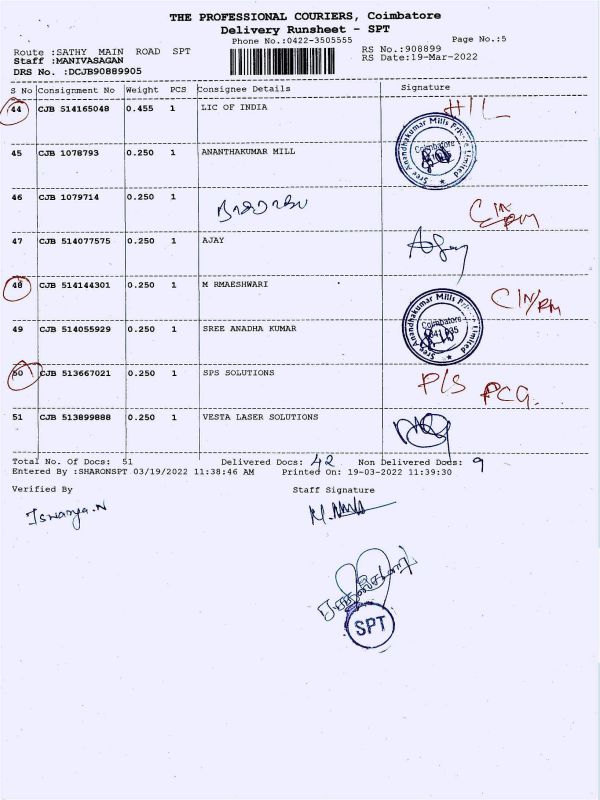 THE PROFESSIONAL COURIERS, Coimbatore
Delivery Runsheet - SPT
Phone No.:0422-3505555 Page No.:5
Route :SATHY MAIN ROAD SPT RS No.:908899
Staff :MANIVASAGAN RS Date:19-Mar-2022
DRS No. :DCJB90889905
S No Consignment No Weight PCS Consignee Details Signature
44 CJB 514165048 0.455 1 LIC OF INDIA H/L
45 CJB 1078793 0.250 1 ANANTHAKUMAR MILL
Sree Anandhakumar Mills Private Limited
Coimbatore
46 CJB 1079714 0.250 1
47 CJB 514077575 0.250 1 AJAY Ajay
48 CJB 514144301 0.250 1 M RMAESHWARI C IN/RM
49 CJB 514055929 0.250 1 SREE ANADHA KUMAR
Sree Anandhakumar Mills Private Limited
Coimbatore
50 CJB 513667021 0.250 1 SPS SOLUTIONS P/S PCG.
51 CJB 513899888 0.250 1 VESTA LASER SOLUTIONS
Total No. Of Docs: 51 Delivered Docs: 42 Non Delivered Docs: 9
Entered By :SHARONSPT 03/19/2022 11:38:46 AM Printed On: 19-03-2022 11:39:30
Verified By Staff Signature
Iswarya.N
SPT